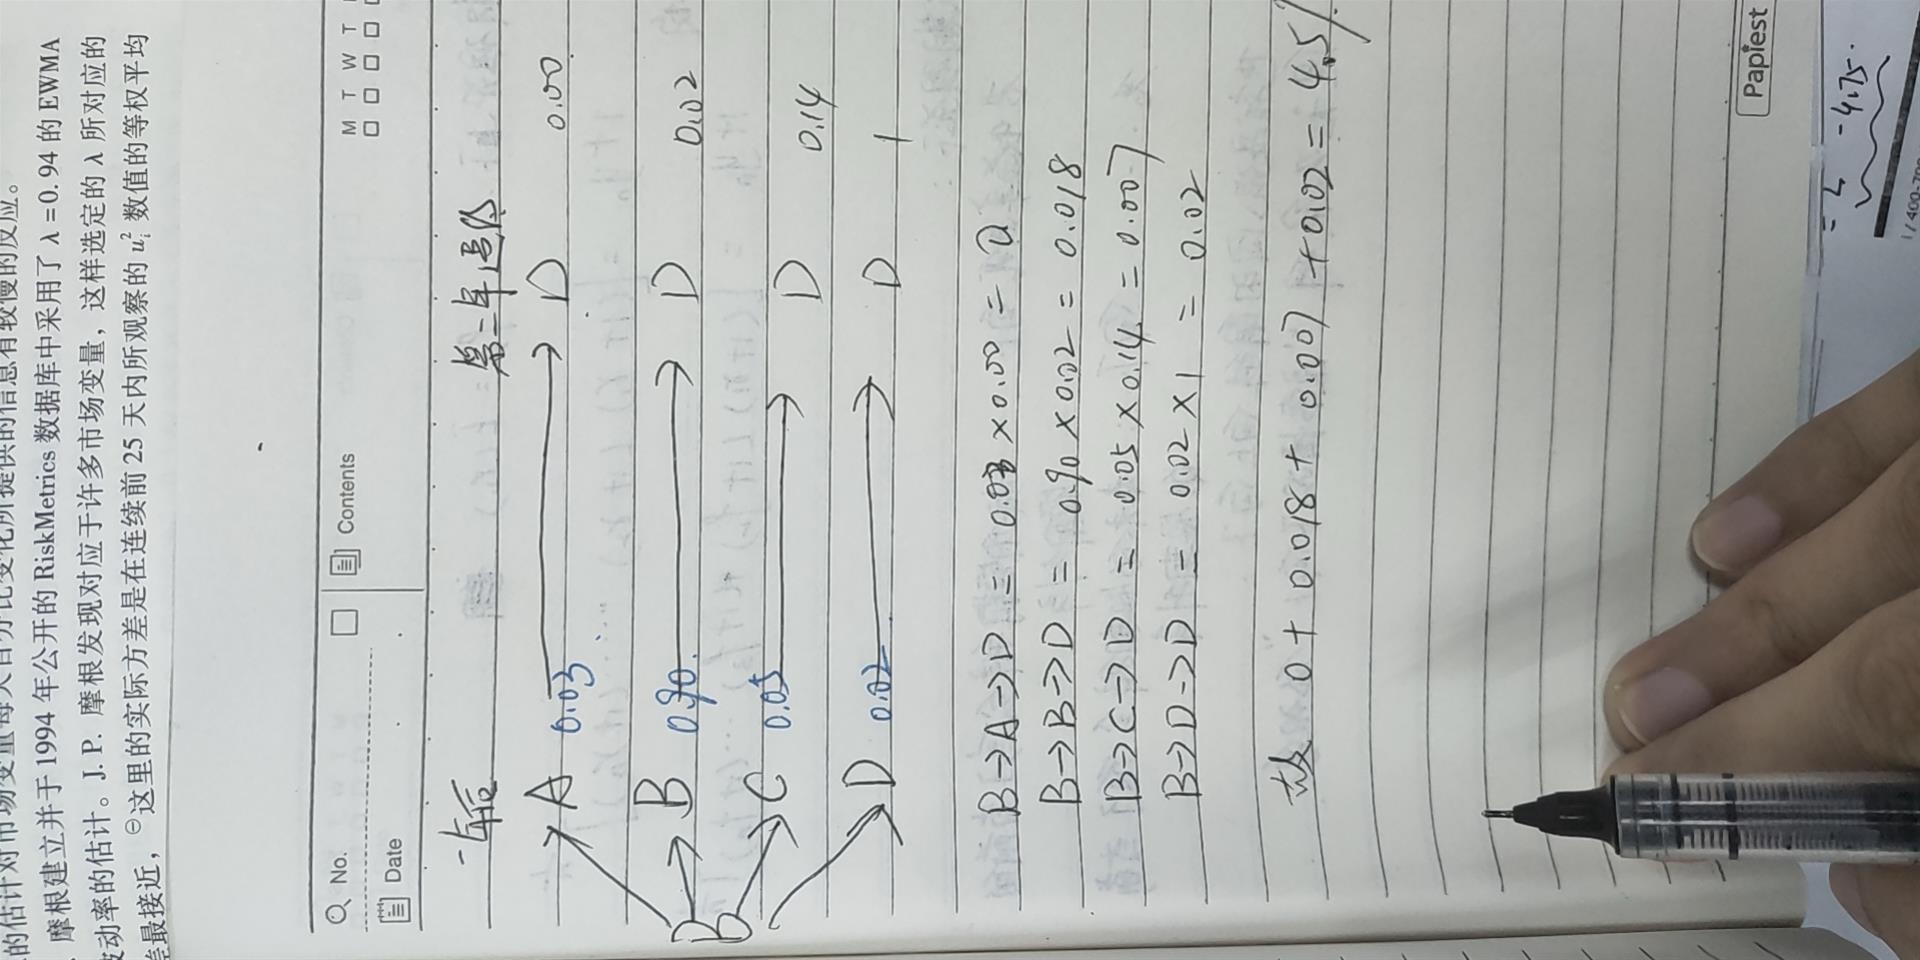 的估计对市场变量每天百分比变化所提供的信息有较慢的反应。
摩根建立并于 1994 年公开的 RiskMetrics 数据库中采用了 λ=0.94 的 EWMA
波动率的估计。J.P. 摩根发现对应于许多市场变量，这样选定的 λ 所对应的
差最接近，㊀这里的实际方差是在连续前 25 天内所观察的 u_i^2 数值的等权平均
No.
Contents
M T W T
Date
一年后 第二年违约
A 0.03 D 0.00
B B 0.90 D 0.02
B C 0.05 D 0.14
D 0.02 D 1
B→A→D = 0.03×0.00 = 0
B→B→D = 0.90×0.02 = 0.018
B→C→D = 0.05×0.14 = 0.007
B→D→D = 0.02×1 = 0.02
故 0+0.018+0.007+0.02=4.5%
Papiest
-4.75.